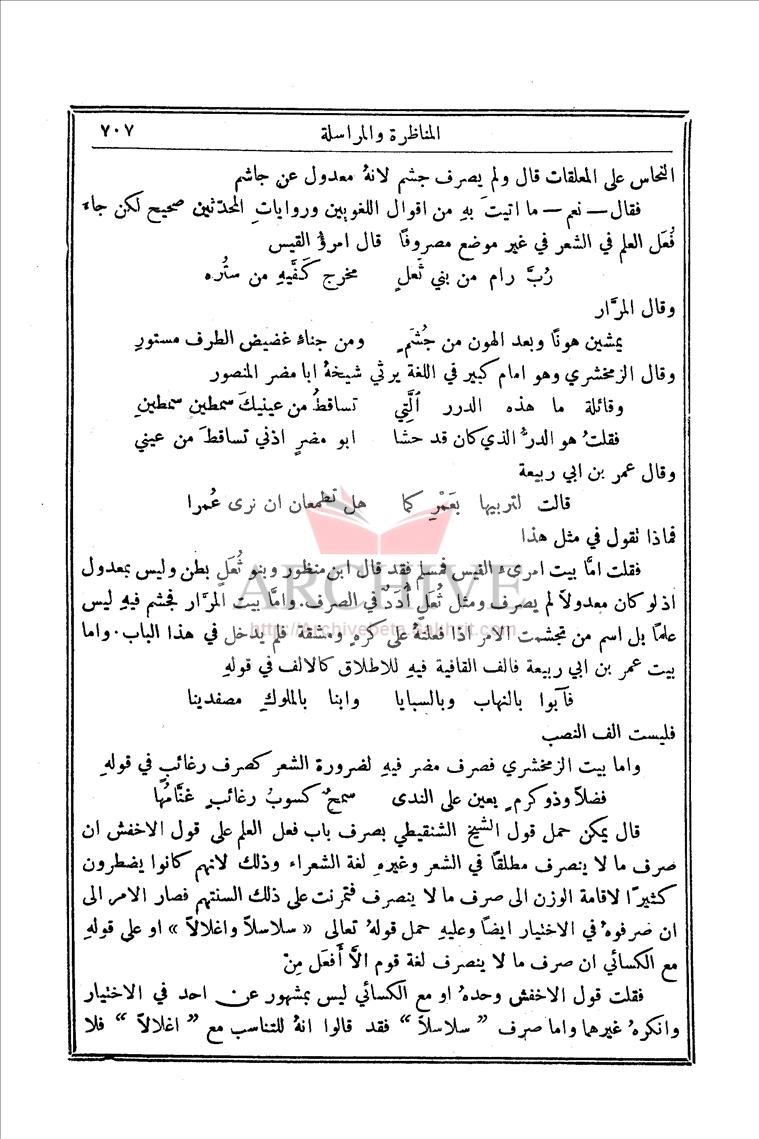 المناظرة والمراسلة ٧٠٧
النحاس على المعلقات قال ولم يصرف جشم لانهُ معدول عن جاشم
فقال — نعم — ما اتيتَ بهِ من اقوال اللغويين ورواياتِ المحدّثين صحيح لكن جاء
فُعَل العلم في الشعر في غير موضع مصروفًا قال امرؤ القيس
رُبَّ رام من بني ثَعلٍ مخرج كَفَّيهِ من ستُره
وقال المرَّار
يمشين هونًا وبعد الهون من جُشَمٍ ومن جناءِ غضيض الطرف مستورِ
وقال الزمخشري وهو امام كبير في اللغة يرثي شيخهُ ابا مضر المنصور
وقائلة ما هذه الدرر ٱلَّتي تساقطُ من عينيكَ سمطين سمطينِ
فقلتُ هو الدرُّ الذي كان قد حشا ابو مضرٍ اذني تساقطَ من عيني
وقال عمر بن ابي ربيعة
قالت لتربيها بعَمْرِ كما هل تطمعان ان نرى عُمرا
فماذا تقول في مثل هذا
فقلت امَّا بيت امرىء القيس فمسلم فقد قال ابن منظور وبنو ثُعَلٍ بطن وليس بمعدول
اذ لو كان معدولاً لم يصرف ومثل ثُعَلٍ أُدَدٌ في الصرف. واما بيت المرَّار فجشم فيهِ ليس
علمًا بل اسم من تجشمت الامر اذا فعلتهُ على كرهٍ ومشقة فلم يدخل في هذا الباب. واما
بيت عمر بن ابي ربيعة فالف القافية فيهِ للاطلاق كالالف في قولهِ
فآبوا بالنهاب وبالسبايا وابنا بالملوكِ مصفدينا
فليست الف النصب
واما بيت الزمخشري فصرف مضر فيهِ لضرورة الشعر كصرف رغائبٍ في قولهِ
فضلاً وذو كرمٍ يعين على الندى سمحٌ كسوبُ رغائبٍ غنَّامُها
قال يمكن حمل قول الشيخ الشنقيطي بصرف باب فعل العلم على قول الاخفش ان
صرف ما لا ينصرف مطلقًا في الشعر وغيرهِ لغة الشعراء وذلك لانهم كانوا يضطرون
كثيرًا لاقامة الوزن الى صرف ما لا ينصرف فتمرنت على ذلك السنتهم فصار الامر الى
ان صرفوهُ في الاختيار ايضًا وعليهِ حمل قولهُ تعالى « سلاسلاً واغلالاً » او على قولهِ
مع الكسائي ان صرف ما لا ينصرف لغة قوم الاَّ أَفعَل مِنْ
فقلت قول الاخفش وحدهُ او مع الكسائي ليس بمشهور عن احد في الاختيار
وانكرهُ غيرهما واما صرف " سلاسلاً " فقد قالوا انهُ للتناسب مع " اغلالاً " فلا
ARCHIVE
http://Archivebeta.Sakhrit.com